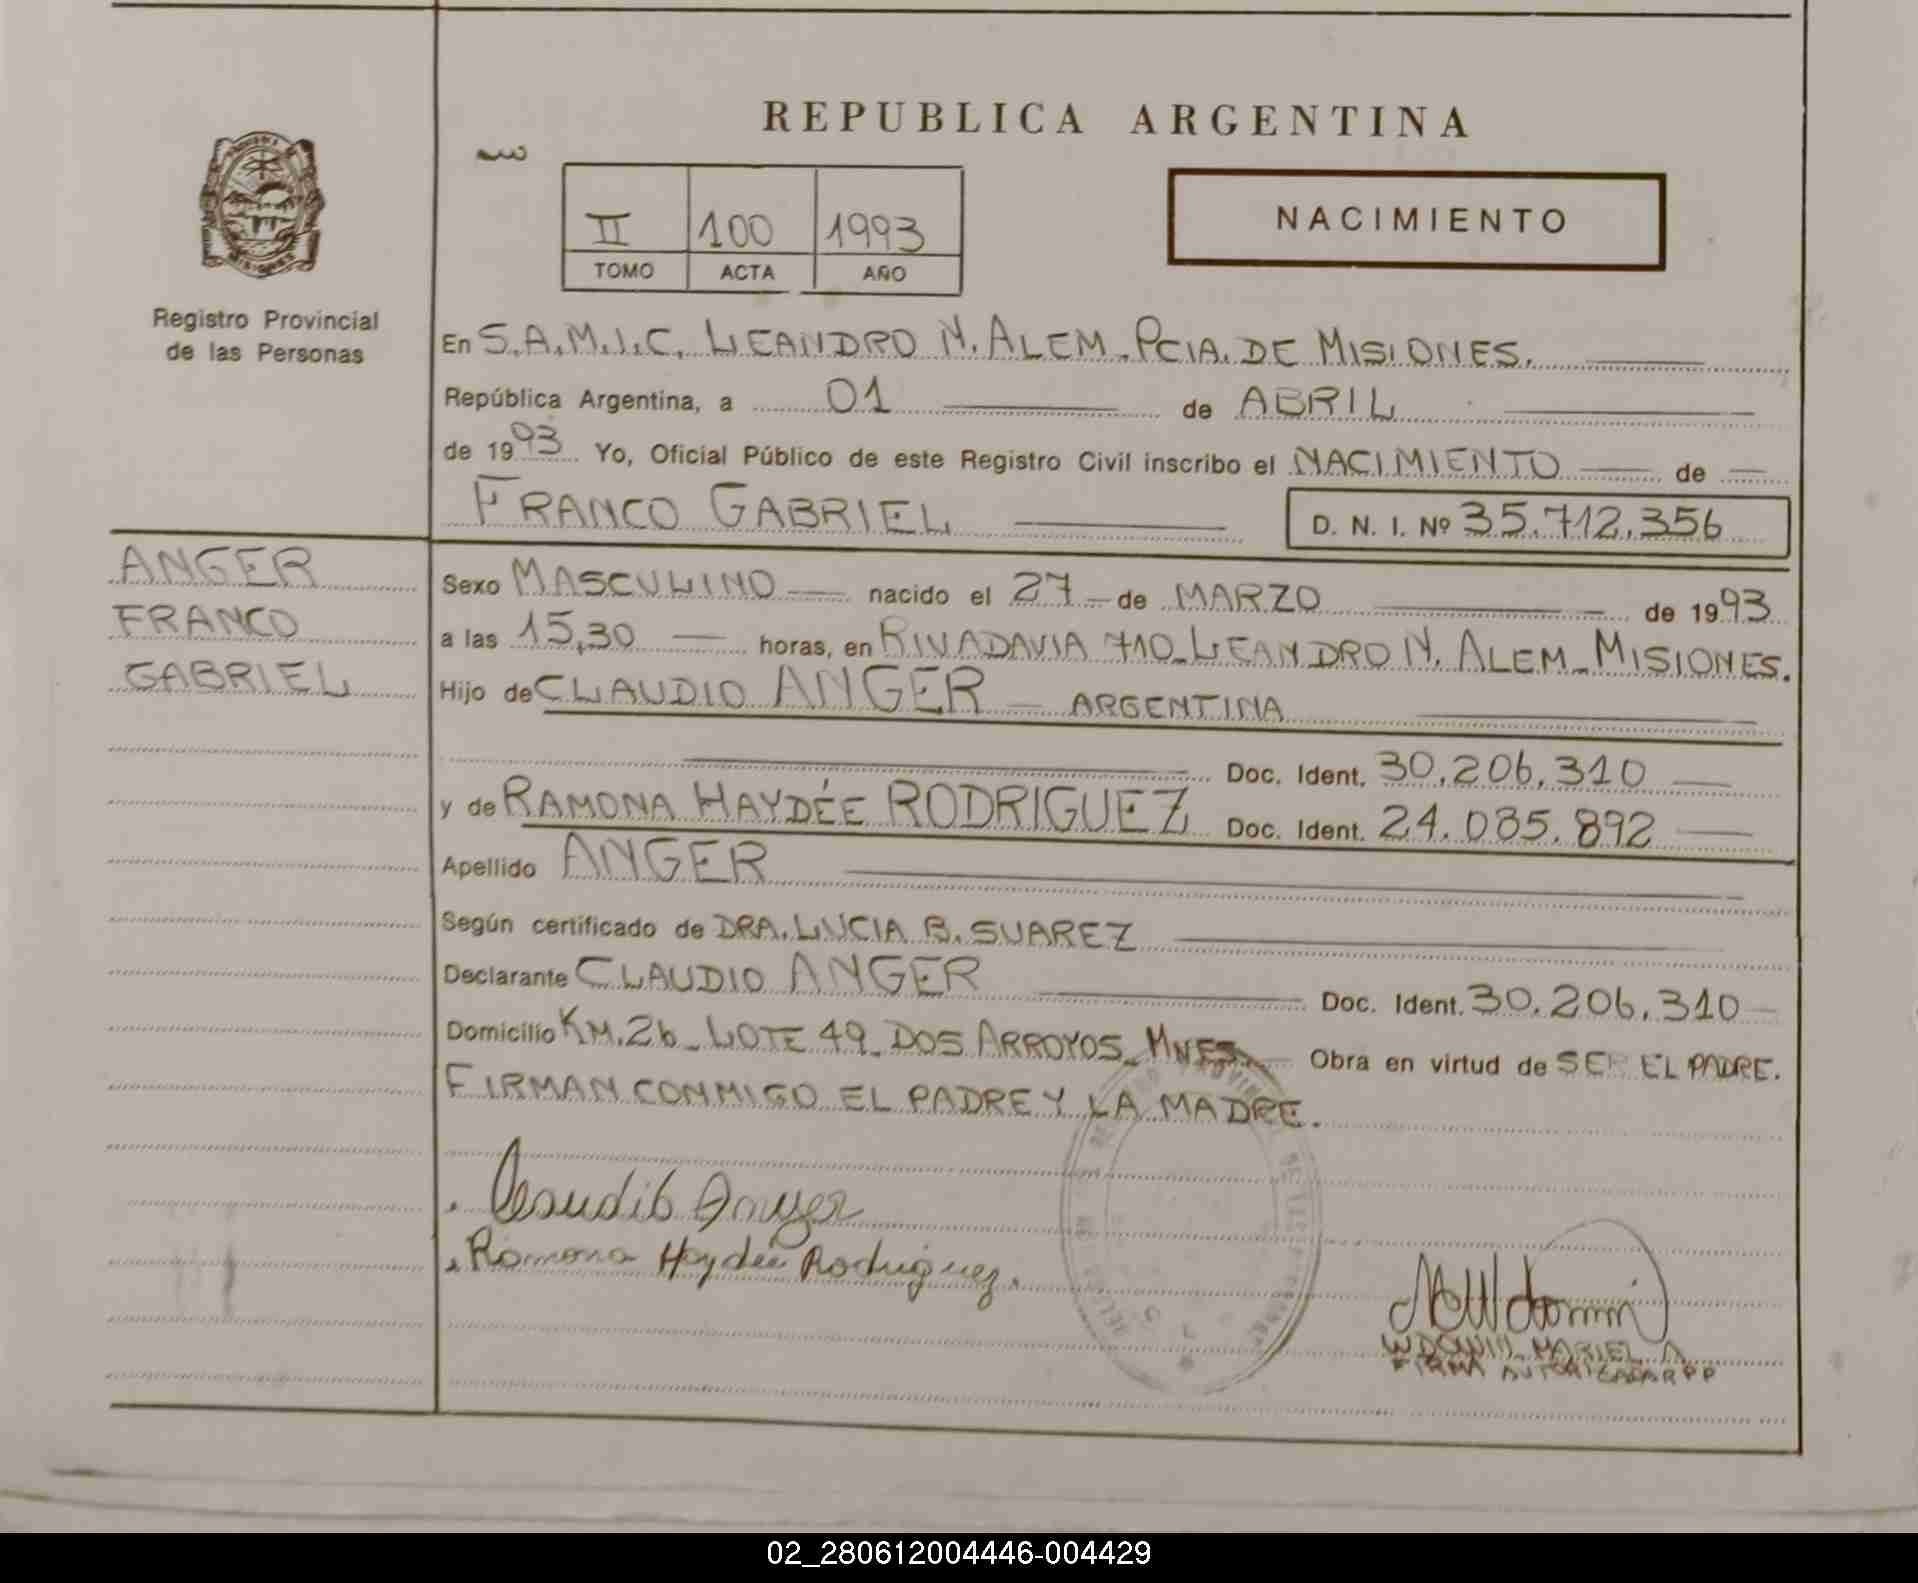 REPUBLICA ARGENTINA
II 100 1993
TOMO ACTA AÑO
NACIMIENTO
Registro Provincial
de las Personas
En S.A.M.I.C. LEANDRO N. ALEM. PCIA. DE MISIONES.
República Argentina, a 01 de ABRIL
de 1993 Yo, Oficial Público de este Registro Civil inscribo el NACIMIENTO de
FRANCO GABRIEL D. N. I. Nº 35.712.356
ANGER
FRANCO
GABRIEL
Sexo MASCULINO nacido el 27 de MARZO de 1993
a las 15,30 horas, en RIVADAVIA 710_LEANDRO N. ALEM_MISIONES.
Hijo de CLAUDIO ANGER ARGENTINA
Doc. Ident. 30.206.310
y de RAMONA HAYDÉE RODRIGUEZ Doc. Ident. 24.085.892
Apellido ANGER
Según certificado de DRA. LUCIA B. SUAREZ
Declarante CLAUDIO ANGER Doc. Ident. 30.206.310
Domicilio KM.26_LOTE 49_DOS ARROYOS_MNES. Obra en virtud de SER EL PADRE.
FIRMAN CONMIGO EL PADRE Y LA MADRE.
Claudio Anger
Ramona Haydée Rodriguez.
MARIEL A.
FIRMA AUTORIZADA R P P
02_280612004446-004429